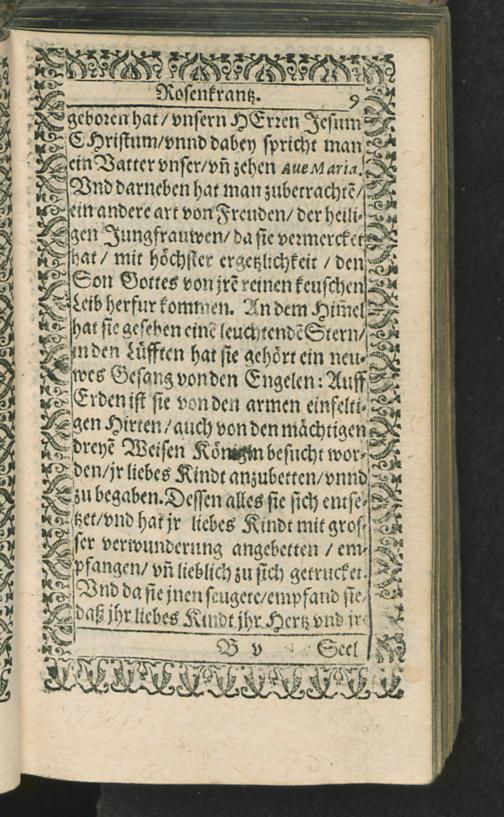 Rosenkrantz. 9
geboren hat / vnsern HErren Jesum
CHristum/vnnd dabey spricht man
ein Vatter vnser/vñ zehen Aue Maria.
Vnd darneben hat man zubetrachtē/
ein andere art von Freuden/ der heili-
gen Jungfrauwen/ da sie vermercket
hat / mit höchster ergetzlichkeit / den
Son Gottes von jrē reinen keuschen
Leib herfur kommen. An dem Him̃el
hat sie gesehen einē leuchtendē Stern/
in den Lüfften hat sie gehört ein neu-
wes Gesang von den Engelen: Auff
Erden ist sie von den armen einfelti-
gen Hirten / auch von den mächtigen
dreyē Weisen Königin besucht wor-
den/jr liebes Kindt anzubetten/vnnd
zu begaben. Dessen alles sie sich entse-
tzet/vnd hat jr liebes Kindt mit gros-
ser verwunderung angebetten / em-
pfangen/ vñ lieblich zu sich getrucket.
Vnd da sie jnen seugete/empfand sie/
daß jhr liebes Kindt jhr Hertz vnd jre
B v Seel